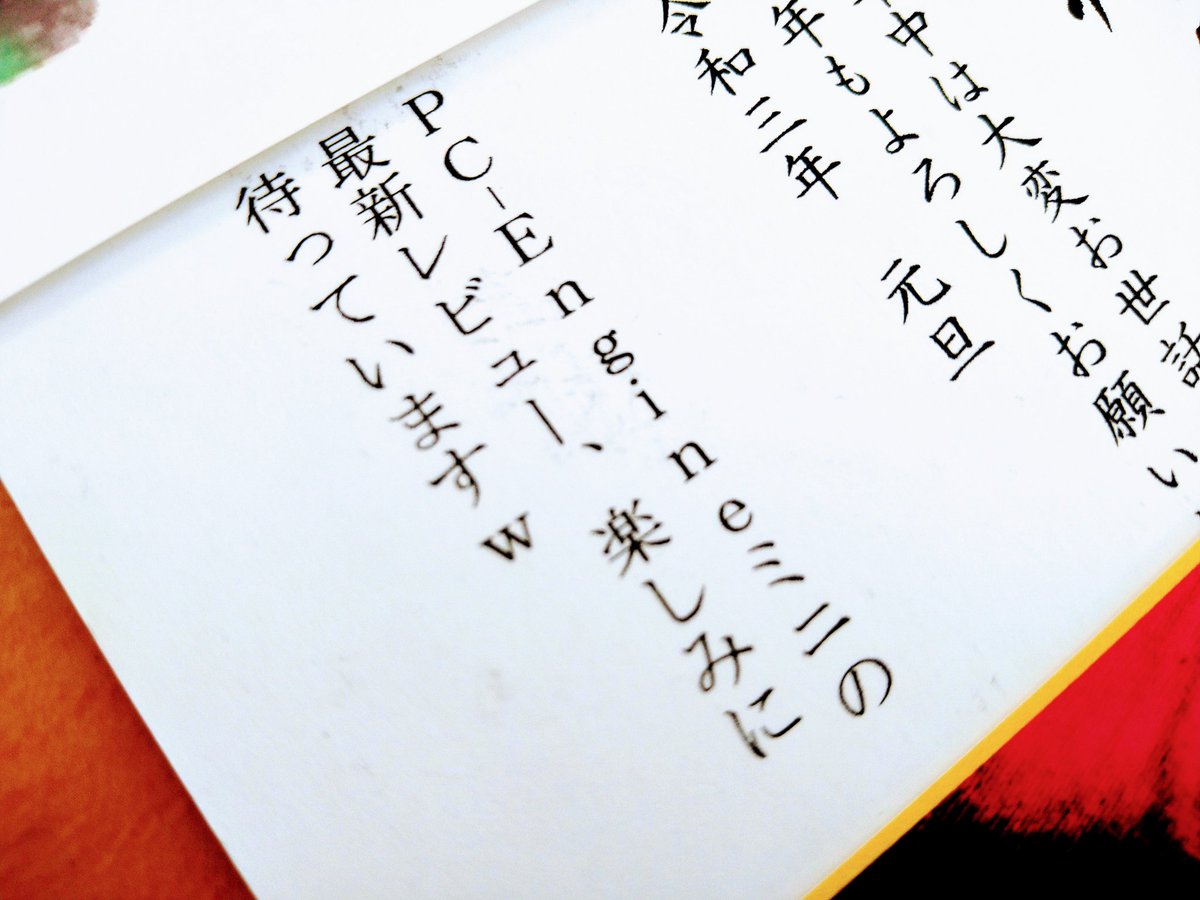 中は大変お世話
年もよろしくお願い
令和三年 元旦
PC-Engineミニの
最新レビュー、楽しみに
待っていますw